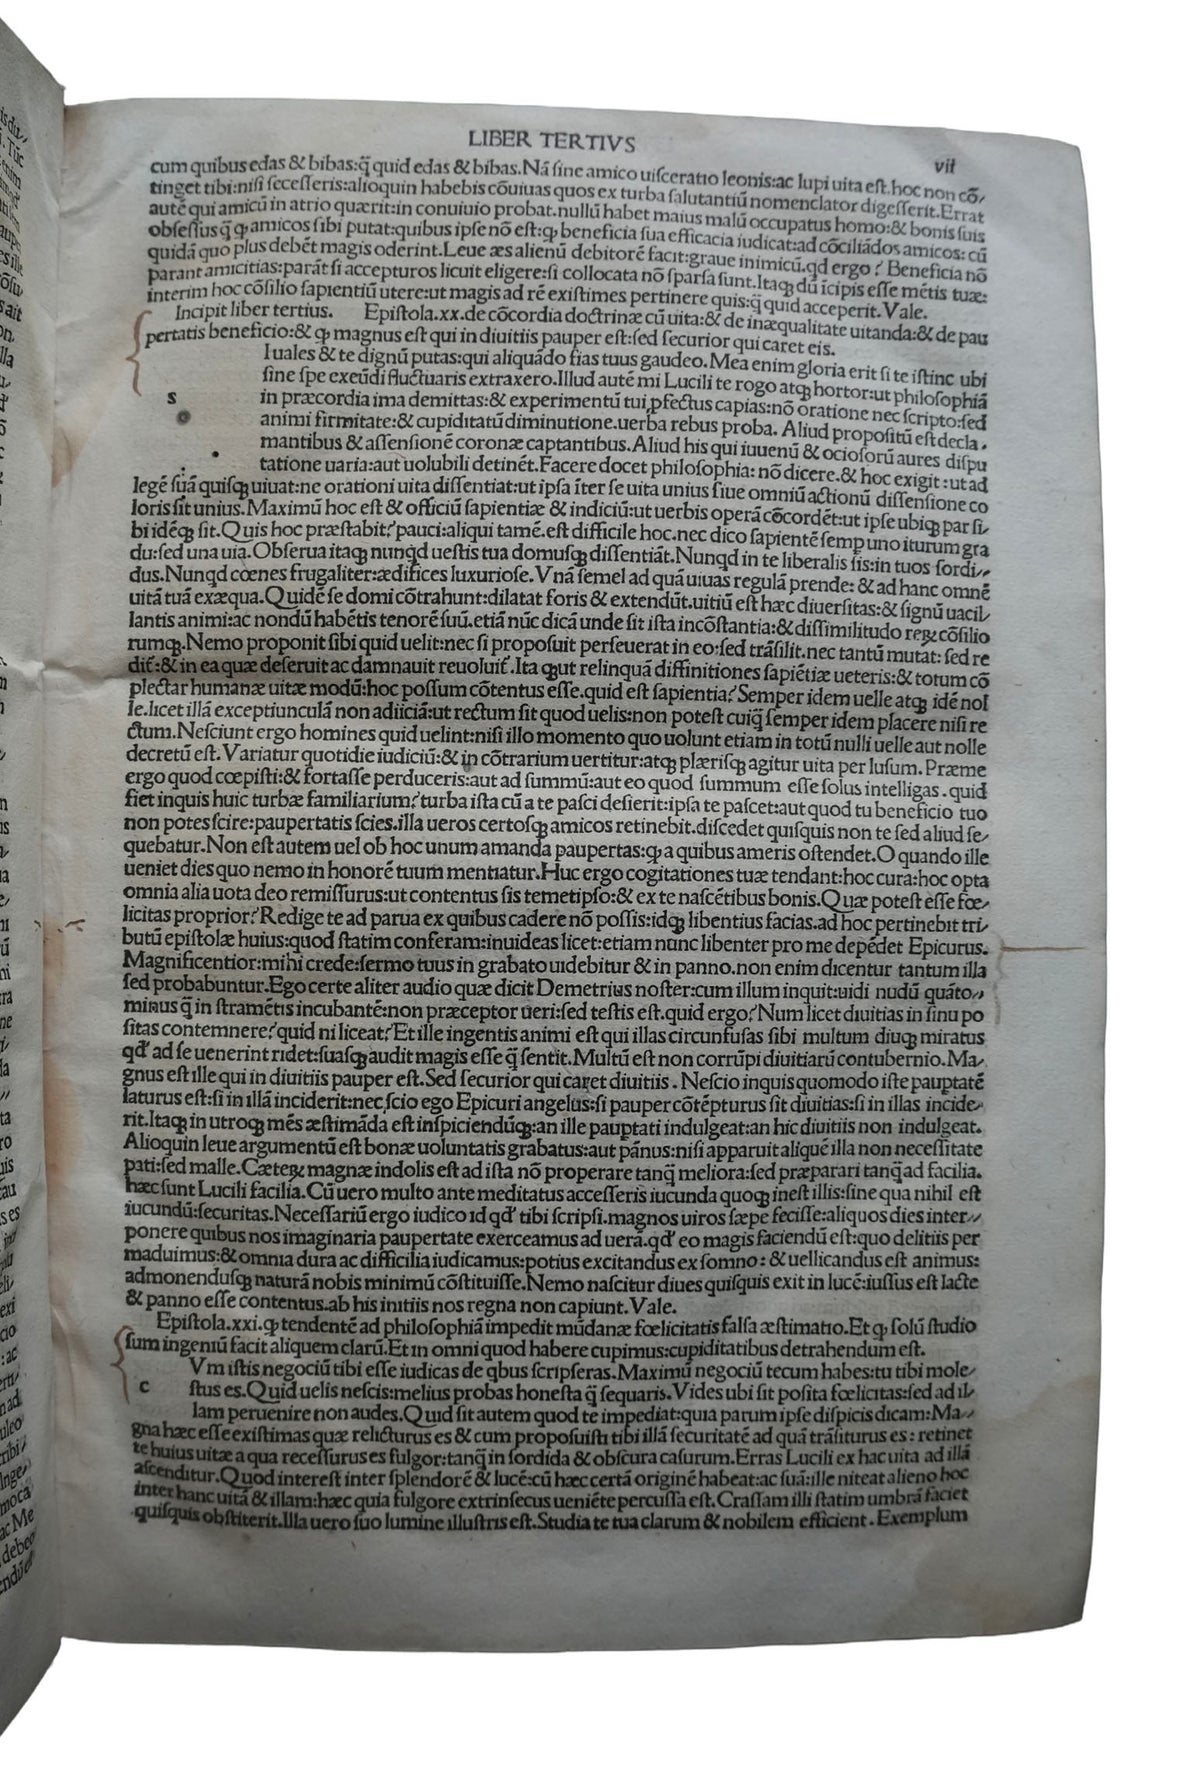 LIBER TERTIVS
vii
cum quibus edas & bibas:q̃ quid edas & bibas.Nã ſine amico uiſceratio leonis:ac lupi uita eſt.hoc non cõ/
tinget tibi:niſi ſeceſſeris:alioquin habebis cõuiuas quos ex turba ſalutantiũ nomenclator digeſſerit.Errat
autẽ qui amicũ in atrio quærit:in conuiuio probat.nullũ habet maius malũ occupatus homo:& bonis ſuis
obſeſſus q̃ ꝙ amicos ſibi putat:quibus ipſe nõ eſt:ꝙ beneficia ſua efficacia iudicat:ad cõciliãdos amicos:cũ
quidã quo plus debẽt magis oderint.Leue æs alienũ debitorẽ facit:graue inimicũ.qd ergo? Beneficia nõ
parant amicitias:parãt ſi accepturos licuit eligere:ſi collocata nõ ſparſa ſunt.Itaqȝ dũ ĩcipis eſſe mẽtis tuæ:
interim hoc cõſilio ſapientiũ utere:ut magis ad rẽ exiſtimes pertinere quis:q̃ quid acceperit.Vale.
Incipit liber tertius. Epiſtola.xx.de cõcordia doctrinæ cũ uita:& de inæqualitate uitanda:& de pau
pertatis beneficio:& ꝙ magnus eſt qui in diuitiis pauper eſt:ſed ſecurior qui caret eis.
I uales & te dignũ putas:qui aliquãdo fias tuus gaudeo.Mea enim gloria erit ſi te iſtinc ubi
ſine ſpe exeũdi fluctuaris extraxero.Illud autẽ mi Lucili te rogo atqȝ hortor:ut philoſophiã
s in præcordia ima demittas:& experimentũ tui ꝓfectus capias:nõ oratione nec ſcripto:ſed
animi firmitate:& cupiditatũ diminutione.uerba rebus proba. Aliud propoſitũ eſt decla.
mantibus & aſſenſionẽ coronæ captantibus.Aliud his qui iuuenũ & ocioſorũ aures diſpu
tatione uaria:aut uolubili detinẽt.Facere docet philoſophia: nõ dicere.& hoc exigit:ut ad
legẽ ſuã quiſqȝ uiuat:ne orationi uita diſſentiat:ut ipſa ĩter ſe uita unius ſiue omniũ actionũ diſſenſione co
loris ſit unius.Maximũ hoc eſt & officiũ ſapientiæ & indiciũ:ut uerbis operã cõcordẽt:ut ipſe ubiqȝ par ſi/
bi idẽqȝ ſit.Quis hoc præſtabit?pauci:aliqui tamẽ.eſt difficile hoc.nec dico ſapientẽ ſemp uno iturum gra
du:ſed una uia.Obſerua itaqȝ nunqd ueſtis tua domuſqȝ diſſentiãt.Nunqd in te liberalis ſis:in tuos ſordi/
dus.Nunqd cœnes frugaliter:ædifices luxurioſe.Vnã ſemel ad quã uiuas regulã prende: & ad hanc omnẽ
uitã tuã exæqua.Quidẽ ſe domi cõtrahunt:dilatat foris & extendũt.uitiũ eſt hæc diuerſitas:& ſignũ uacil/
lantis animi:ac nondũ habẽtis tenorẽ ſuũ.etiã nũc dicã unde ſit iſta incõſtantia:& diſſimilitudo reꝝ cõſilio
rumqȝ.Nemo proponit ſibi quid uelit:nec ſi propoſuit perſeuerat in eo:ſed trãſilit.nec tantũ mutat: ſed re
dit̃:& in ea quæ deſeruit ac damnauit reuoluit̃.Ita qȝut relinquã diffinitiones ſapiẽtiæ ueteris:& totum cõ
plectar humanæ uitæ modũ:hoc poſſum cõtentus eſſe.quid eſt ſapientia?Semper idem uelle atqȝ idẽ nol
le.licet illã exceptiunculã non adiiciã:ut rectum ſit quod uelis:non poteſt cuiq̃ ſemper idem placere niſi re
ctum.Neſciunt ergo homines quid uelint:niſi illo momento quo uolunt etiam in totũ nulli uelle aut nolle
decretũ eſt.Variatur quotidie iudiciũ:& in cõtrarium uertitur:atqȝ plæriſqȝ agitur uita per luſum.Præme
ergo quod cœpiſti:& fortaſſe perduceris:aut ad ſummũ:aut eo quod ſummum eſſe ſolus intelligas.quid
fiet inquis huic turbæ familiarium?turba iſta cũ a te paſci deſierit:ipſa te paſcet:aut quod tu beneficio tuo
non potes ſcire:paupertatis ſcies.illa ueros certoſqȝ amicos retinebit.diſcedet quiſquis non te ſed aliud ſe/
quebatur.Non eſt autem uel ob hoc unum amanda paupertas:ꝙ a quibus ameris oſtendet.O quando ille
ueniet dies quo nemo in honorẽ tuum mentiatur.Huc ergo cogitationes tuæ tendant:hoc cura:hoc opta
omnia alia uota deo remiſſurus:ut contentus ſis temetipſo:& ex te naſcẽtibus bonis.Quæ poteſt eſſe fœ/
licitas proprior?Redige te ad parua ex quibus cadere nõ poſſis:idqȝ libentius facias.ad hoc pertinebit tri/
butũ epiſtolæ huius:quod ſtatim conferam:inuideas licet:etiam nunc libenter pro me depẽdet Epicurus.
Magnificentior:mihi crede:ſermo tuus in grabato uidebitur & in panno.non enim dicentur tantum illa
ſed probabuntur.Ego certe aliter audio quæ dicit Demetrius noſter:cum illum inquit:uidi nudũ quãto/
minus q̃ in ſtramẽtis incubantẽ:non præceptor ueri:ſed teſtis eſt.quid ergo?Num licet diuitias in ſinu po
ſitas contemnere?quid ni liceat?Et ille ingentis animi eſt qui illas circunfuſas ſibi multum diuqȝ miratus
qd' ad ſe uenerint ridet:ſuaſqȝ audit magis eſſe q̃ ſentit.Multũ eſt non corrũpi diuitiarũ contubernio.Ma/
gnus eſt ille qui in diuitiis pauper eſt.Sed ſecurior qui caret diuitiis.Neſcio inquis quomodo iſte pauptatẽ
laturus eſt:ſi in illã inciderit:nec ſcio ego Epicuri angelus:ſi pauper cõtẽpturus ſit diuitias:ſi in illas incide/
rit.Itaqȝ in utroqȝ mẽs æſtimãda eſt inſpiciendũqȝ:an ille pauptati indulgeat:an hic diuitiis non indulgeat.
Alioquin leue argumentũ eſt bonæ uoluntatis grabatus:aut pãnus:niſi apparuit aliquẽ illa non neceſſitate
pati:ſed malle.Cæteꝝ magnæ indolis eſt ad iſta nõ properare tanq̃ meliora:ſed præparari tanq̃ ad facilia.
hæc ſunt Lucili facilia.Cũ uero multo ante meditatus acceſſeris iucunda quoqȝ ineſt illis:ſine qua nihil eſt
iucundũ:ſecuritas.Neceſſariũ ergo iudico id qd' tibi ſcripſi.magnos uiros ſæpe feciſſe:aliquos dies inter/
ponere quibus nos imaginaria paupertate exerceamus ad uerã.qd' eo magis faciendũ eſt:quo delitiis per
maduimus:& omnia dura ac difficilia iudicamus:potius excitandus ex ſomno: & uellicandus eſt animus:
admonenduſqȝ naturã nobis minimũ cõſtituiſſe.Nemo naſcitur diues quiſquis exit in lucẽ:iuſſus eſt lacte
& panno eſſe contentus.ab his initiis nos regna non capiunt.Vale.
Epiſtola.xxi.ꝙ tendentẽ ad philoſophiã impedit mũdanæ fœlicitatis falſa æſtimatio.Et ꝙ ſolũ ſtudio
ſum ingeniũ facit aliquem clarũ.Et in omni quod habere cupimus:cupiditatibus detrahendum eſt.
Vm iſtis negociũ tibi eſſe iudicas de qbus ſcripſeras.Maximũ negociũ tecum habes:tu tibi mole/
c ſtus es.Quid uelis neſcis:melius probas honeſta q̃ ſequaris.Vides ubi ſit poſita fœlicitas:ſed ad il/
lam peruenire non audes.Quid ſit autem quod te impediat:quia parum ipſe diſpicis dicam:Ma/
gna hæc eſſe exiſtimas quæ relicturus es & cum propoſuiſti tibi illã ſecuritatẽ ad quã trãſiturus es: retinet
te huius uitæ a qua receſſurus es fulgor:tanq̃ in ſordida & obſcura caſurum.Erras Lucili ex hac uita ad illã
aſcenditur.Quod intereſt inter ſplendorẽ & lucẽ:cũ hæc certã originẽ habeat:ac ſuã:ille niteat alieno hoc
inter hanc uitã & illam:hæc quia fulgore extrinſecus ueniẽte percuſſa eſt.Craſſam illi ſtatim umbrã faciet
quiſquis obſtiterit.Illa uero ſuo lumine illuſtris eſt.Studia te tua clarum & nobilem efficient.Exemplum